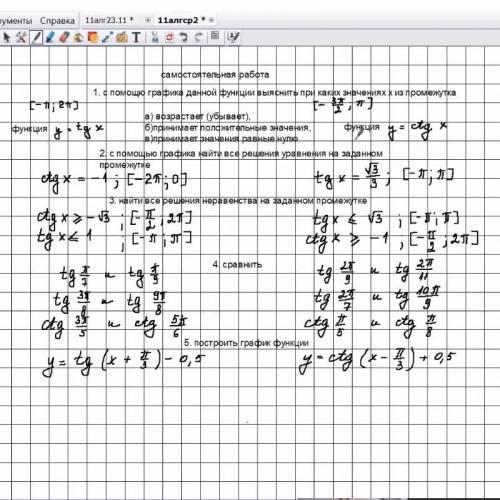 рументы Справка 11алг23.11 * 11алгср2 *
самостоятельная работа
1. с помощью графика данной функции выяснить при каких значениях х из промежутка
[-π; 2π] [-3π/2; π]
а) возрастает (убывает),
функция y = tg x б)принимает положительные значения, функция y = ctg x
в)принимает значения равные нулю
2. с помощью графика найти все решения уравнения на заданном
промежутке
ctg x = -1 ; [-2π; 0] tg x = √3/3 ; [-π; π]
3. найти все решения неравенства на заданном промежутке
ctg x ≥ -√3 ; [-π/2; 2π] tg x ≤ √3 ; [-π; π]
tg x ≤ 1 ; [-π; π] ctg x ≥ -1 ; [-π/2; 2π]
4. сравнить
tg π/7 и tg π/9 tg 2π/9 и tg 2π/11
tg 3π/8 и tg 9π/8 tg 2π/7 и tg 10π/9
ctg 3π/5 и ctg 5π/6 ctg π/5 и ctg π/8
5. построить график функции
y = tg (x + π/3) - 0,5 y = ctg (x - π/3) + 0,5